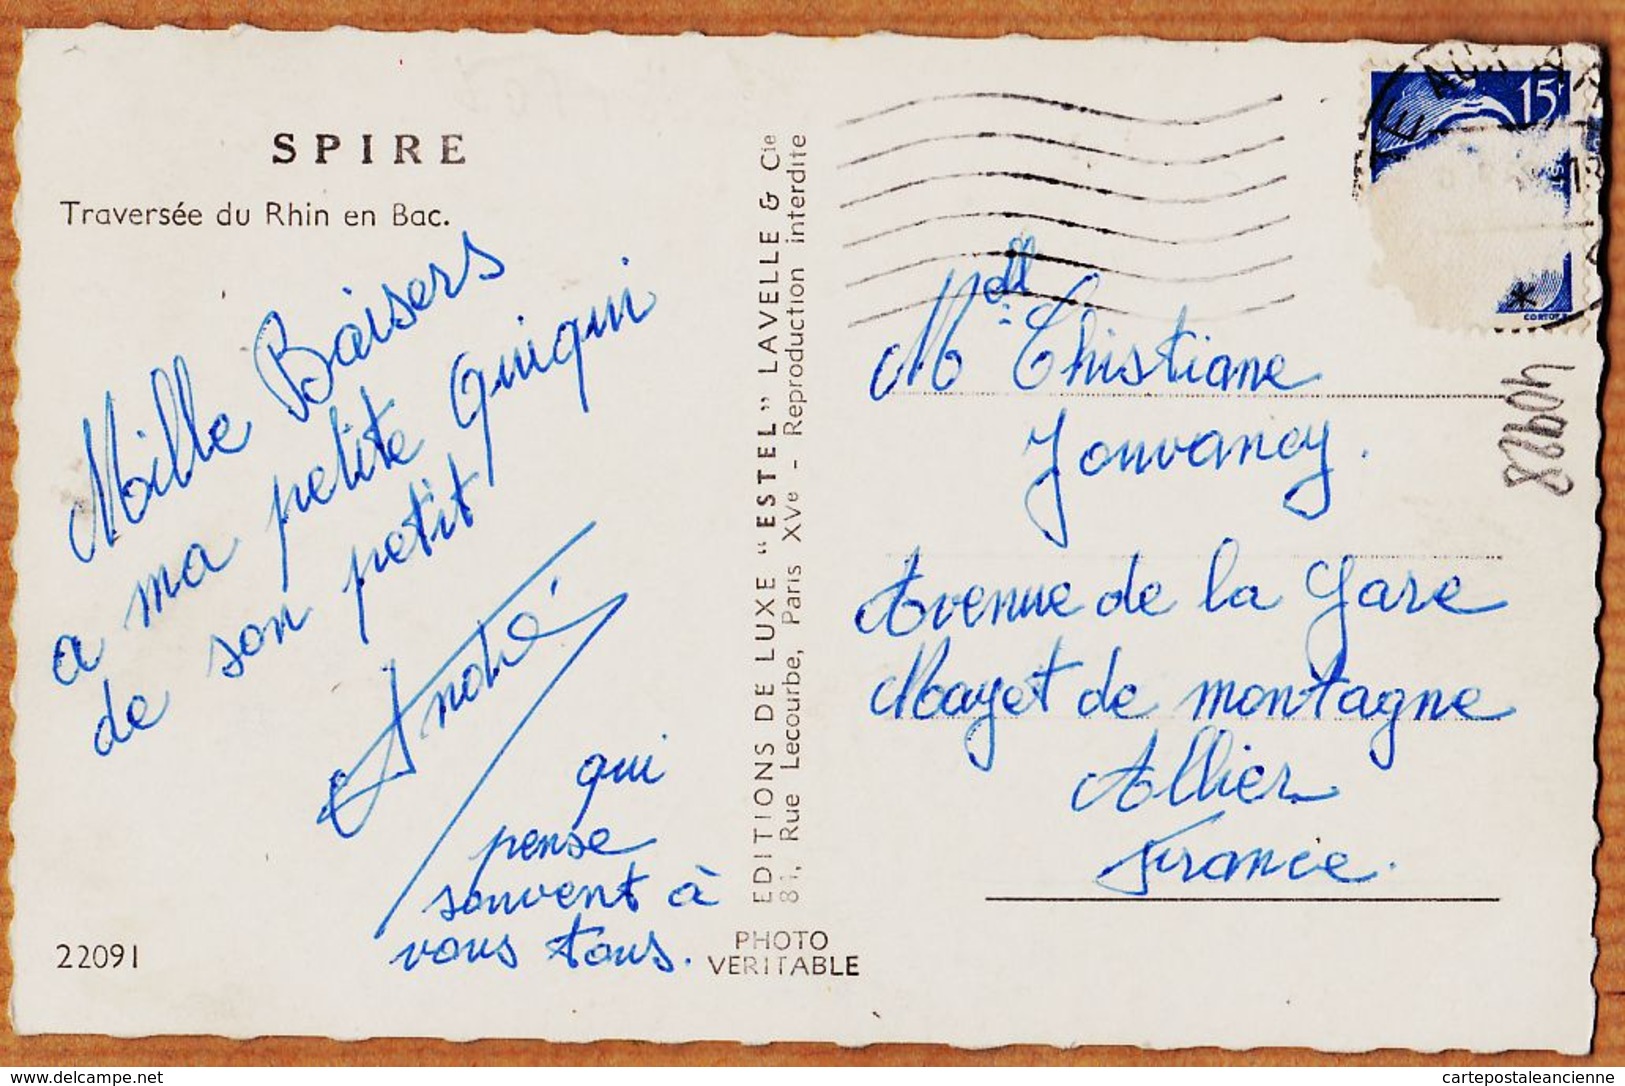 SPIRE
Traversée du Rhin en Bac.
Mille Baisers
a ma petite Quiqui
de son petit
André
qui
pense
souvent à
vous tous.
22091
EDITIONS DE LUXE "ESTEL" LAVELLE & Cie
81, Rue Lecourbe, Paris XVe - Reproduction interdite
PHOTO
VERITABLE
15f
TE AUX A
*
CORTOT
Mdll Christiane
Jouvancy.
Avenue de la Gare
Mayet de montagne
Allier
France.
40928
www.delcampe.net
cartepostaleancienne